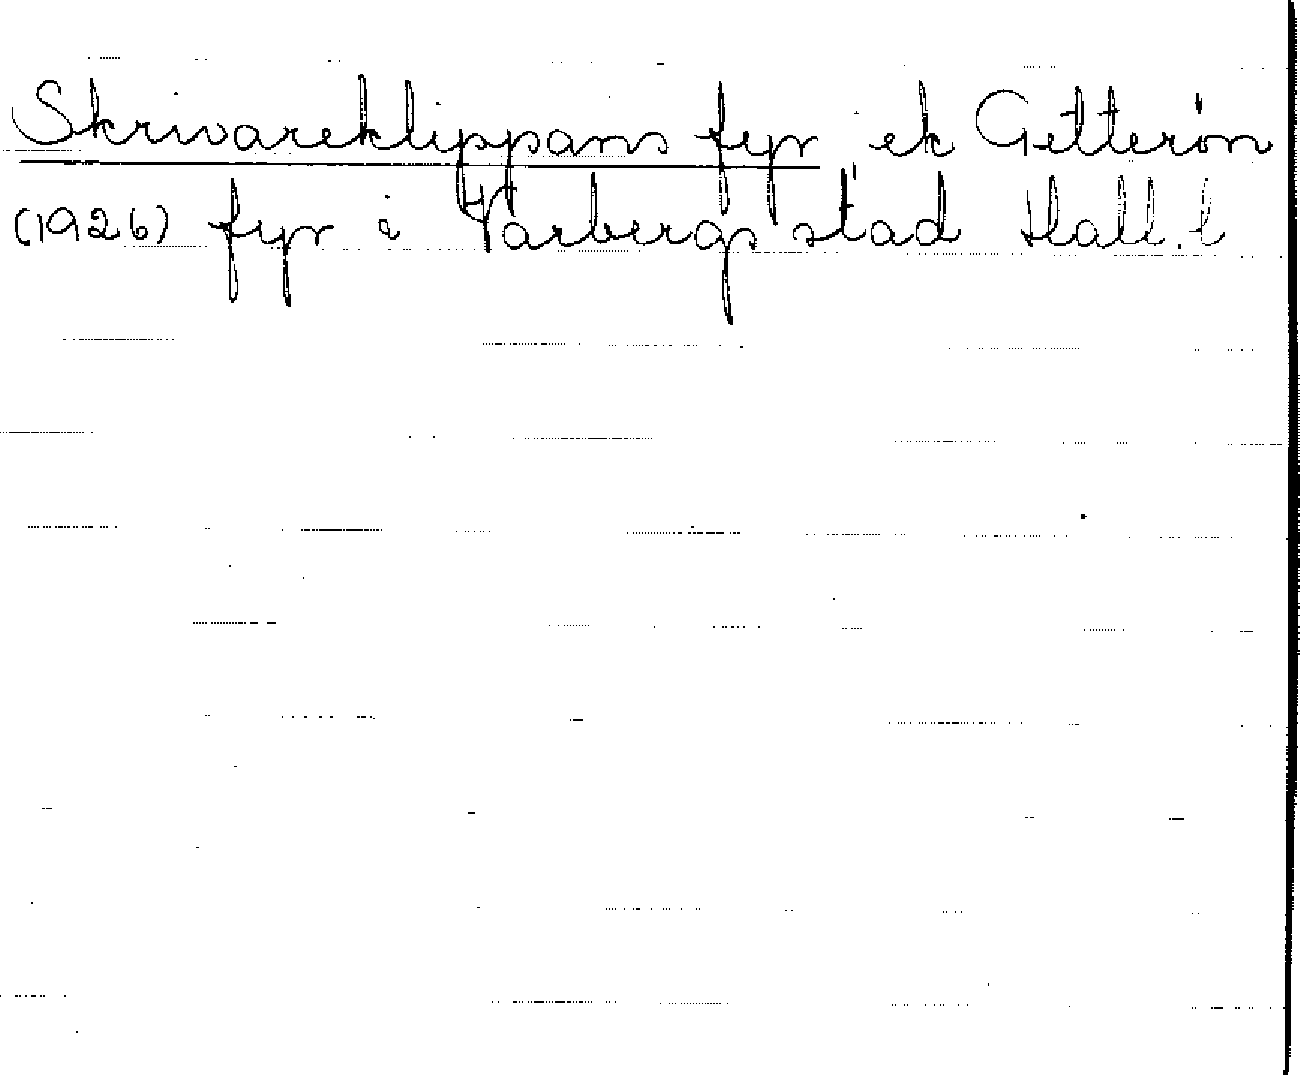 Skrivareklippans fyr, ek Getterön
(1926) fyr i Varbergs stad Hall. l